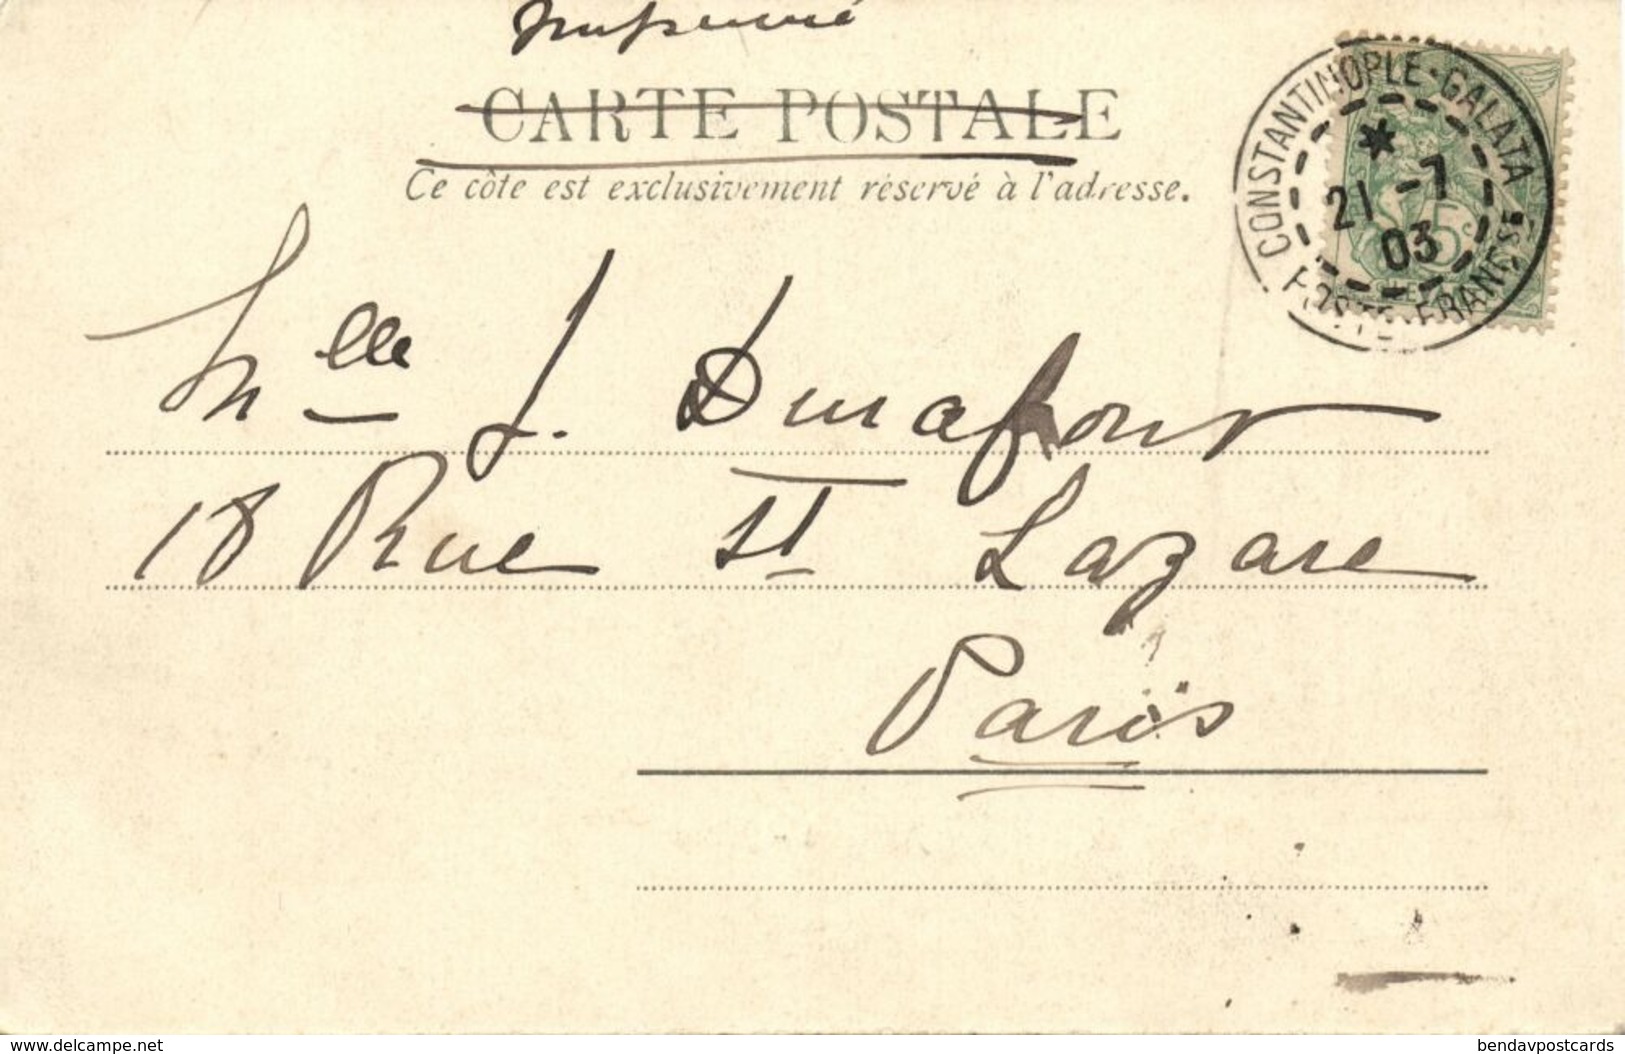 Imprimé
CARTE POSTALE
Ce côte est exclusivement réservé à l'adresse.
CONSTANTINOPLE-GALATA
21 -7
03
POSTE FRANÇSE
5c
Mlle J. Durafour
18 Rue St Lazare
Paris
delcampe.net
bendavpostcards